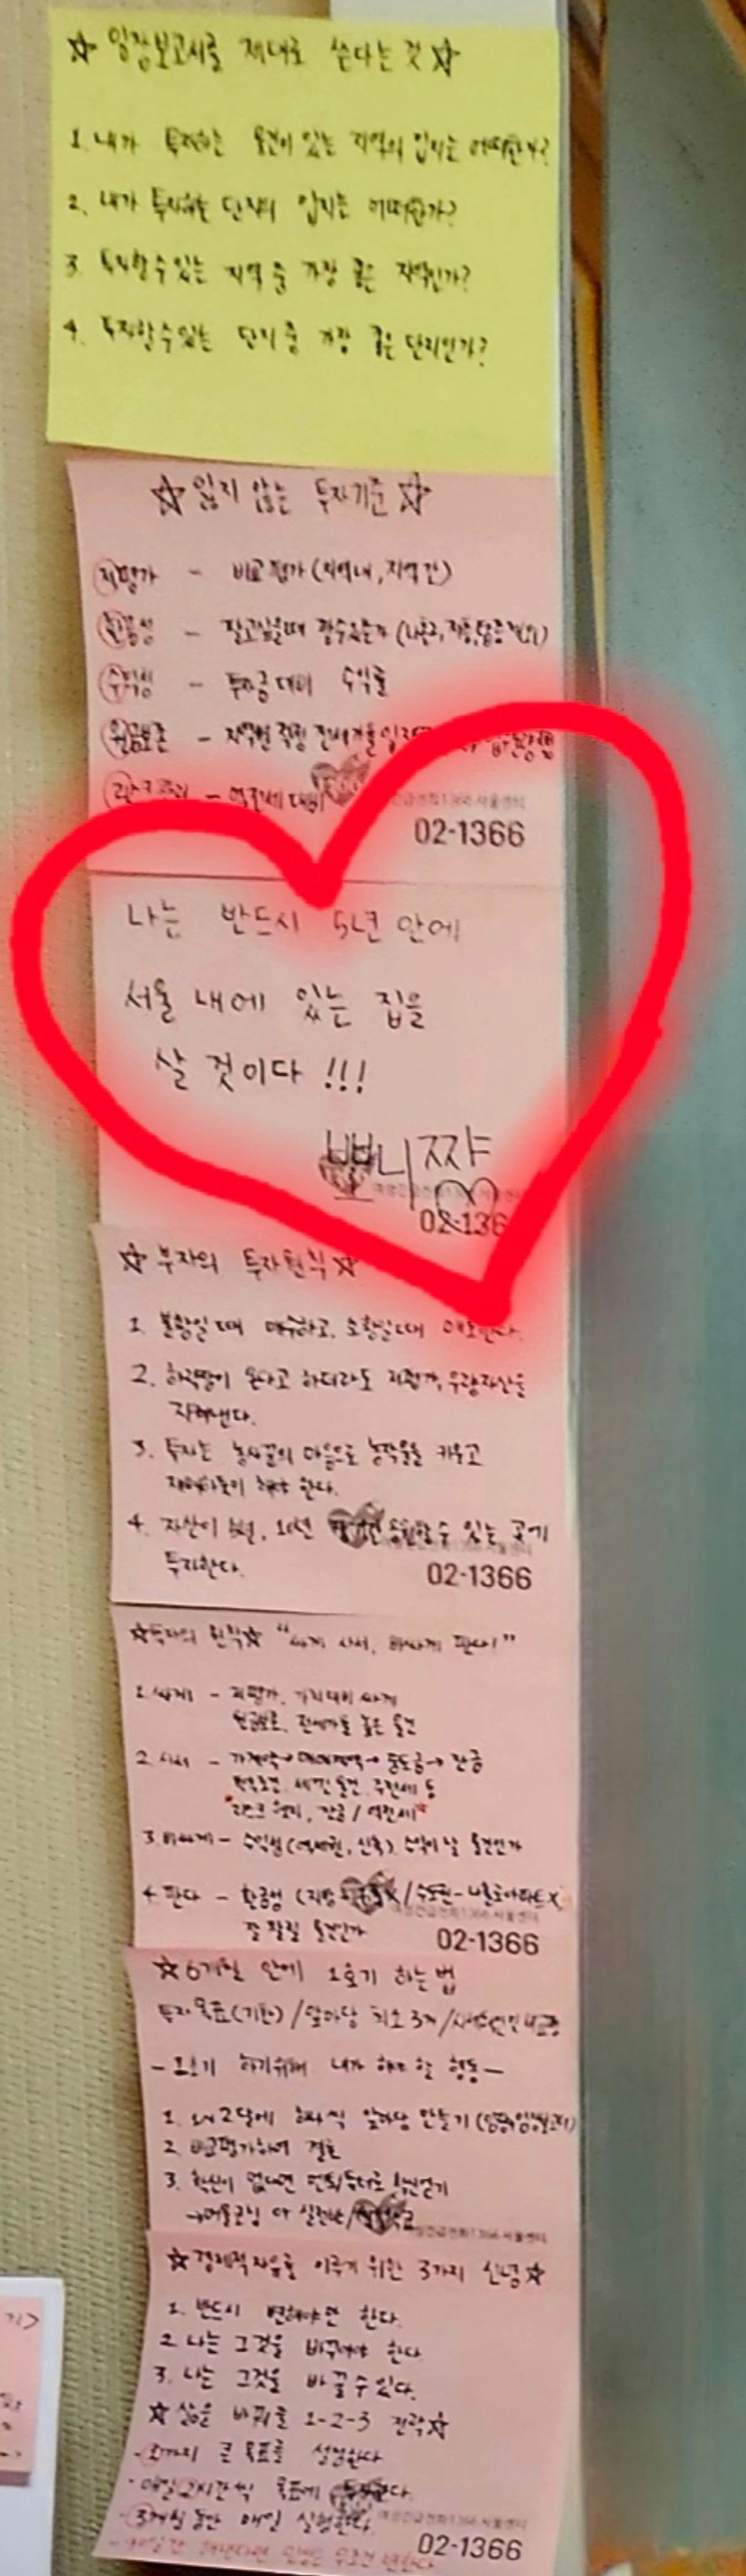 ☆ 임장보고서를 제대로 쓴다는 것 ☆
1. 내가 투자하는 물건이 있는 지역의 입지는 어떠한가?
2. 내가 투자하는 단지의 입지는 어떠한가?
3. 투자할 수 있는 지역 중 가장 좋은 지역인가?
4. 투자할 수 있는 단지 중 가장 좋은 단지인가?
☆ 잃지 않는 투자기준 ☆
저평가 - 비교평가 (지역내, 지역간)
환금성 - 팔고싶을때 팔수있는가
수익성 - 투자금 대비 수익률
원금보존 - 지역별 적정 전세가율
리스크관리 - 역전세 대비
02-1366
나는 반드시 5년 안에
서울 내에 있는 집을
살 것이다 !!!
뽀니쨩
02-136
☆ 부자의 투자원칙 ☆
1. 불황일 때 매수하고, 호황일 때 매도한다.
2. 하락장이 온다고 하더라도 저평가, 우량자산을
지켜낸다.
3. 투자는 농사꾼의 마음으로 농작물을 키우고
해야 한다.
4. 자산이 5년, 10년 있는 곳에
투자한다.
02-1366
☆투자의 원칙☆ "싸게 사서, 비싸게 판다!"
1. 싸게 - 저평가, 가치대비 싸게
원금보존, 전세가율 높은 물건
2. 사서 - 가계약→매매계약→중도금→잔금
리스크 관리, 잔금/역전세
3. 비싸게 - 수익성 (역세권, 신축) 수익이 날 물건인가
4. 판다 - 환금성
잘 팔릴 물건인가
02-1366
☆ 6개월 안에 1호기 하는 법
투자 목표(기한)/앞마당 최소 3개/
- 1호기 하기위해 내가 해야 할 행동 -
1. 2달에 하나씩 앞마당 만들기
2. 비교평가하여 결론
3. 확신이 없다면
☆경제적 자유를 이루기 위한 3가지 신념☆
1. 반드시 변해야만 한다.
2. 나는 그것을 바꾸어야 한다
3. 나는 그것을 바꿀 수 있다.
☆ 삶을 바꿔줄 1-2-3 전략☆
- 1가지 큰 목표를 설정한다
- 매일 2시간씩 목표에 투자한다.
- 3개월 동안 매일 실행한다.
여성긴급전화1366 서울센터
02-1366